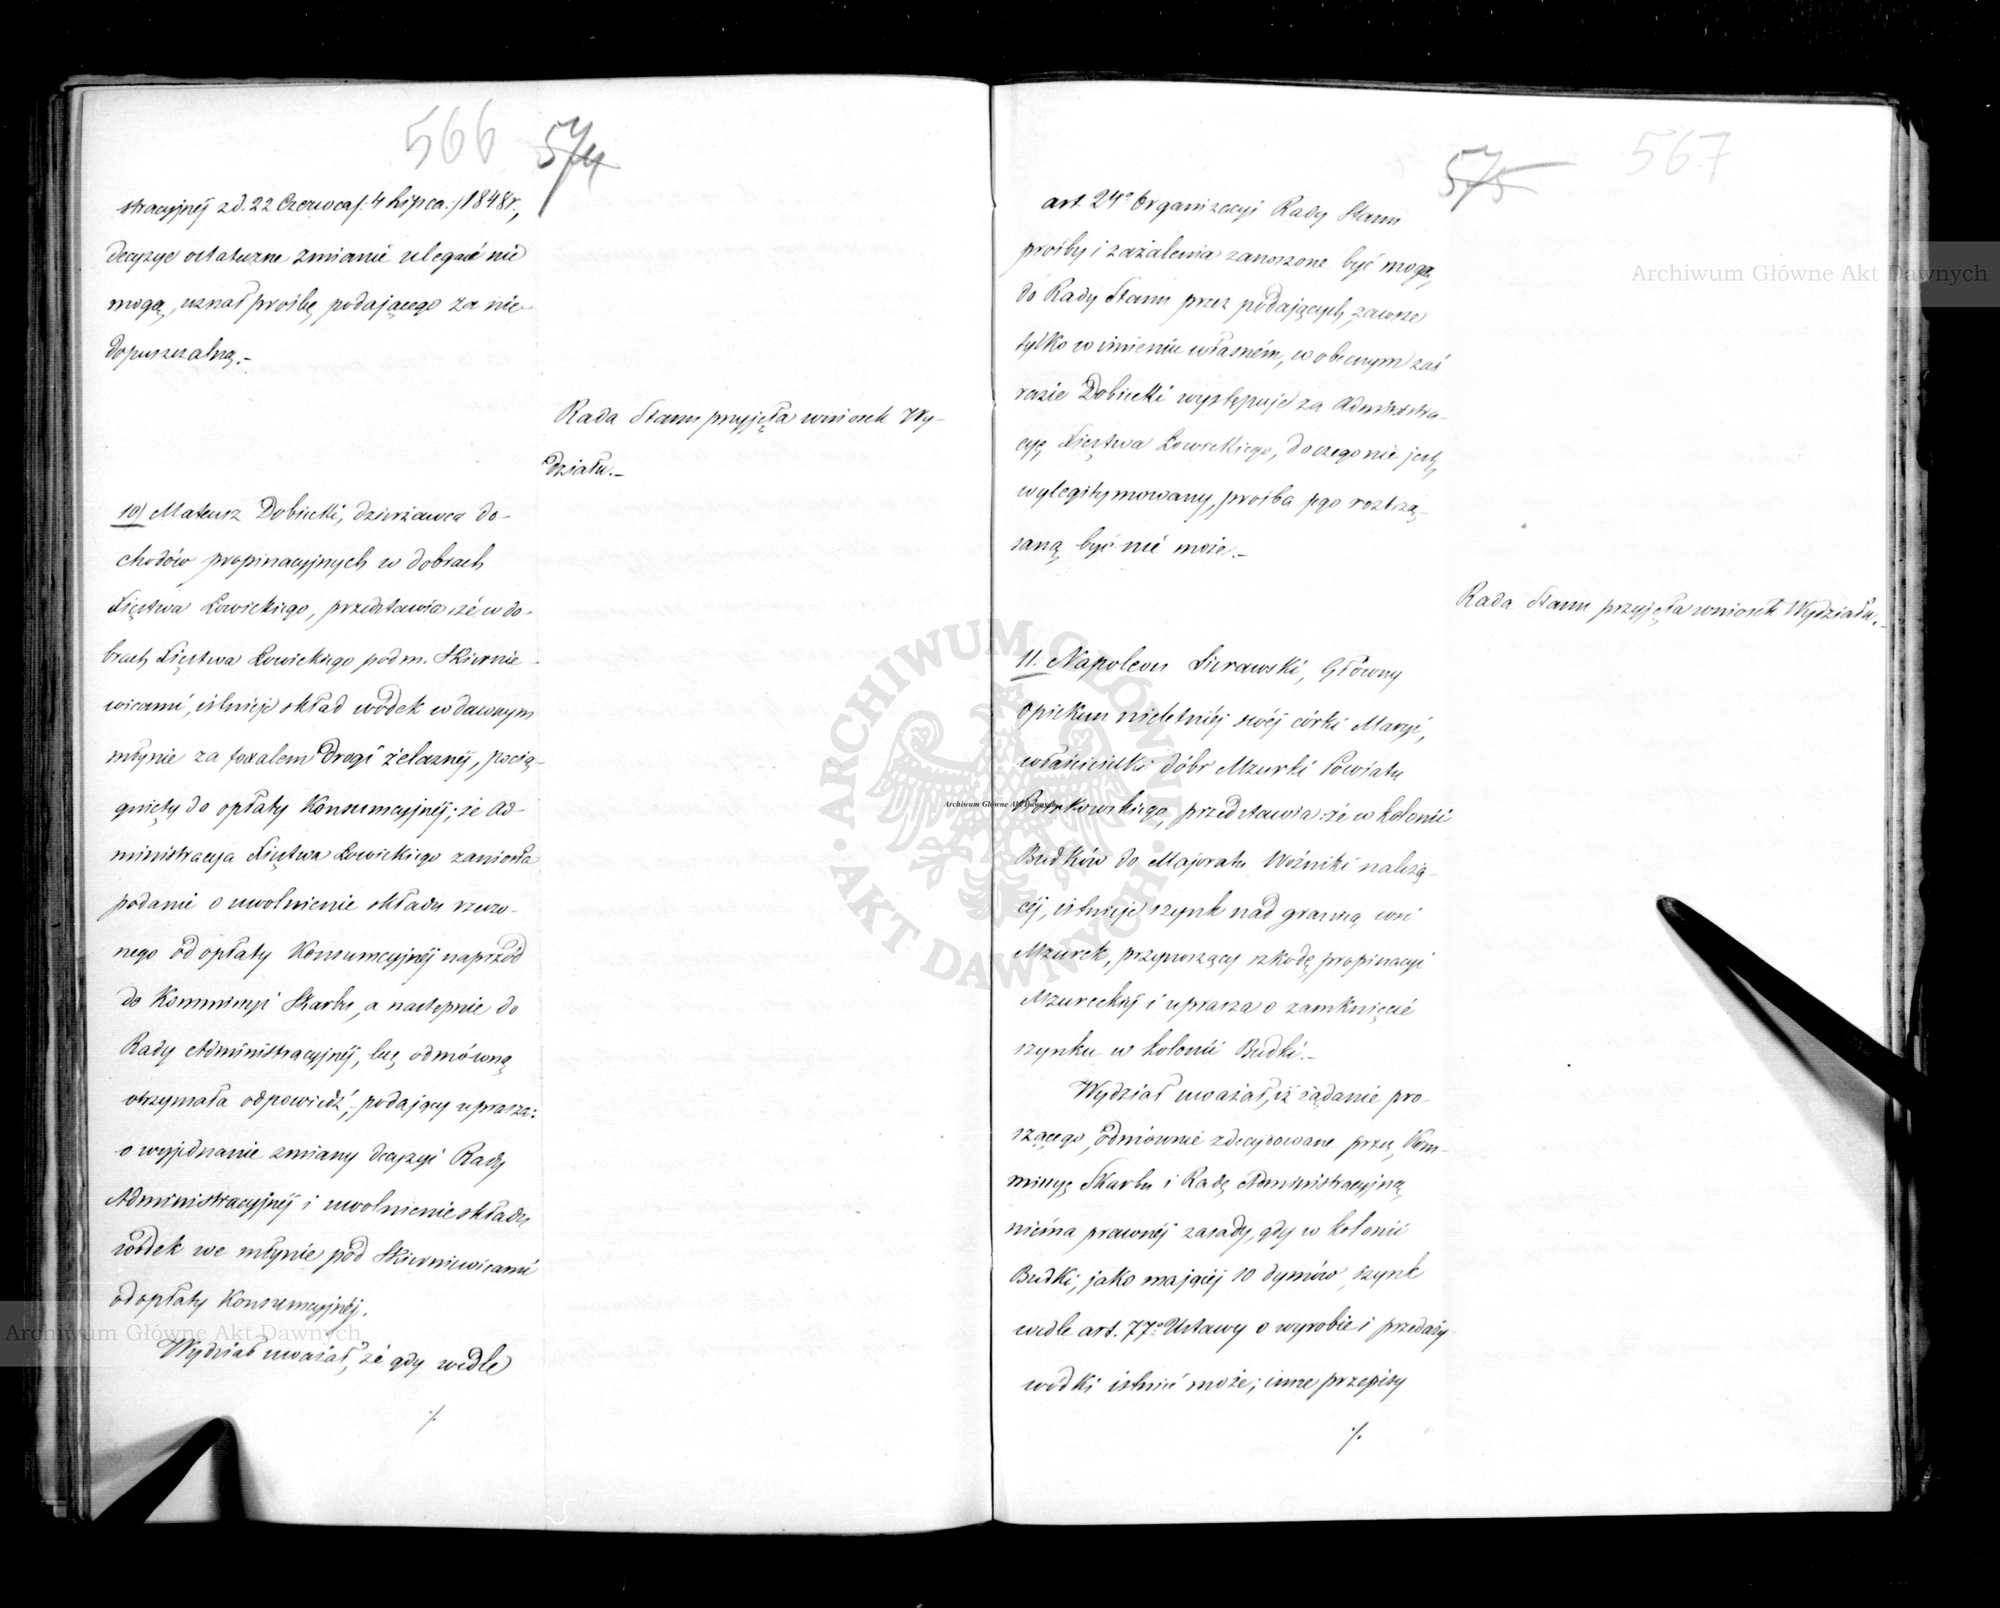 566 574
stracyjnéj z d. 22 Czerwca /: 4 Lipca :/ 1848 r.,
decyzye ostateczne zmianie ulegać nie
mogą, uznał prośbę podającego za nie-
dopuszczalną.-
Rada Stanu przyjęła wniosek Wy-
działu.-
10) Mateusz Dobiecki, dzierżawca do-
chodów propinacyjnych w dobrach
Xięstwa Łowickiego, przedstawia: że w do-
brach Xięstwa Łowickiego pod m. Skiernie-
wicami, istnieje skład wódek w dawnym
młynie za foxalem Drogi żelaznéj, pocią-
gnięty do opłaty Konsumcyjnéj; że Ad-
ministracya Xięstwa Łowickiego zaniosła
podanie o uwolnienie składu rzeczo-
nego od opłaty Konsumcyjnéj naprzód
do Kommissyi Skarbu, a następnie do
Rady Administracyjnéj, lecz odmówną
otrzymała odpowiedź; podający uprasza:
o wyjednanie zmiany decyzyi Rady
Administracyjnéj i uwolnienie składu
wódek we młynie pod Skierniewicami
od opłaty Konsumcyjnéj.
Wydział uważał, że gdy wedle
./.
575 567
art. 24o Organizacyi Rady Stanu
prośby i zażalenia zanoszone być mogą,
do Rady Stanu przez podających zawsze
tylko w imieniu własném, w obecnym zaś
razie Dobiecki występuje za Administra-
cyę Xięstwa Łowickiego, do czego nie jest
wylegitymowany, prośba jego roztrzą-
saną być nie może.-
Rada Stanu przyjęła wniosek Wydziału.-
11. Napoleon Sierawski, Główny
opiekun nieletniéj swéj córki Maryi,
właścicielki dóbr Mzurki Powiatu
Piotrkowskiego, przedstawia: że w kolonii
Budków do Majoratu Woźniki należą-
céj, istnieje szynk nad granicą wsi
Mzurek, przynoszący szkodę propinacyi
Mzureckiéj i uprasza o zamknięcie
szynku w kolonii Budki.-
Wydział uważał, iż żądanie pro-
szącego, odmównie zdecydowane przez Kom-
missyę Skarbu i Radę Administracyjną
nie ma prawnéj zasady, gdy w kolonii
Budki, jako mającéj 10 dymów, szynk
wedle art. 77o Ustawy o wyrobie i przedaży
wódki istnieć może; inne przepisy
./.
Archiwum Główne Akt Dawnych
Archiwum Główne Akt Dawnych
Archiwum Główne Akt Dawnych
ARCHIWUM GŁÓWNE
AKT DAWNYCH